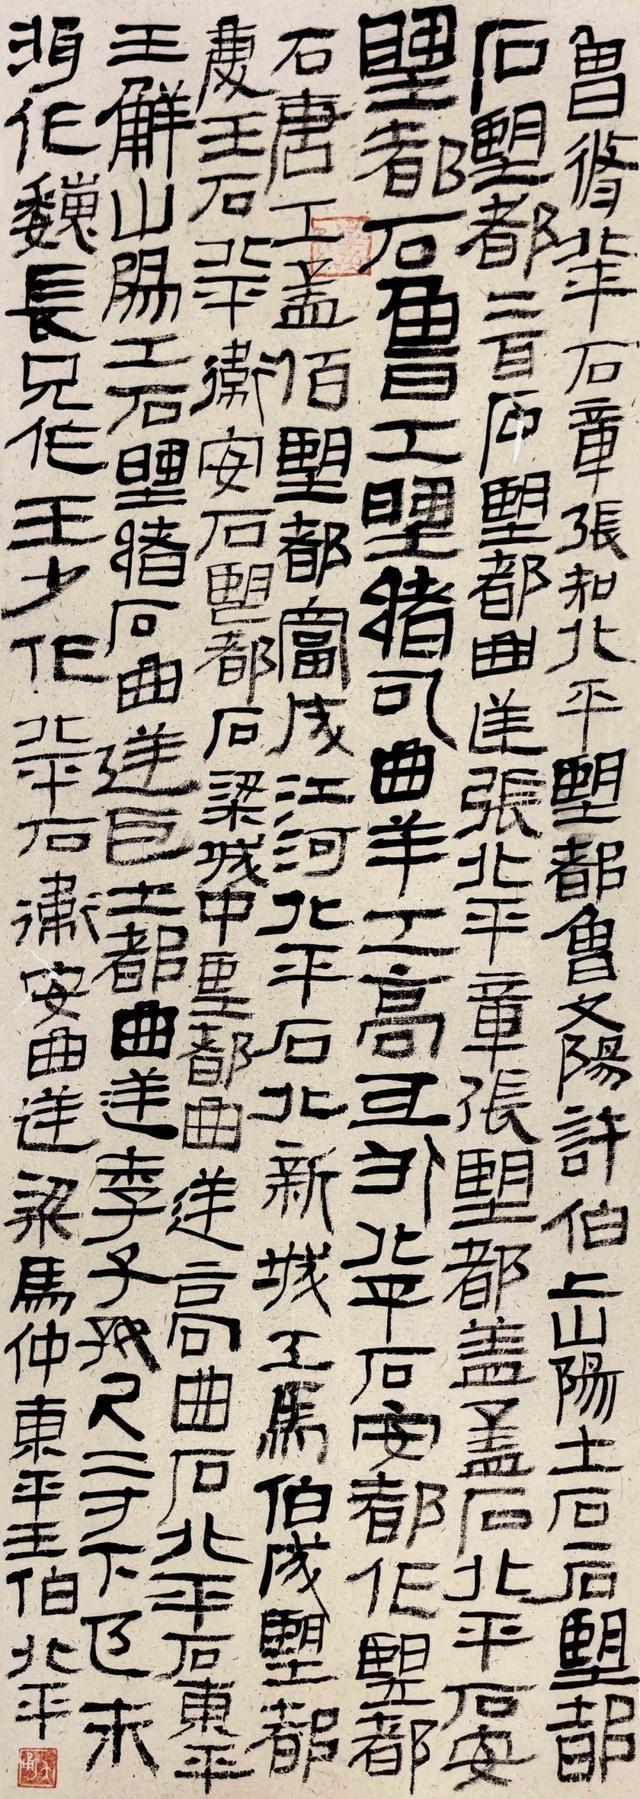 魯脩北平石章張和北平望都魯文陽許伯上山陽土石石望都
石望都二百石望都曲逆張北平章張望都蓋孟石北平石安
望都石魯工望猪石曲羊工高北平石安都作望都
石唐工孟佰望都富成江河北平石北新城工馬伯成望都
慶王石北平衛安石望都石梁城中望都曲逆高曲石北平石東平
王解山陽工石望猪石曲逆巨土都曲逆李子尺二寸下邑未
作魏長兄作王少作北平石衛安曲逆梁馬仲東平王伯北平